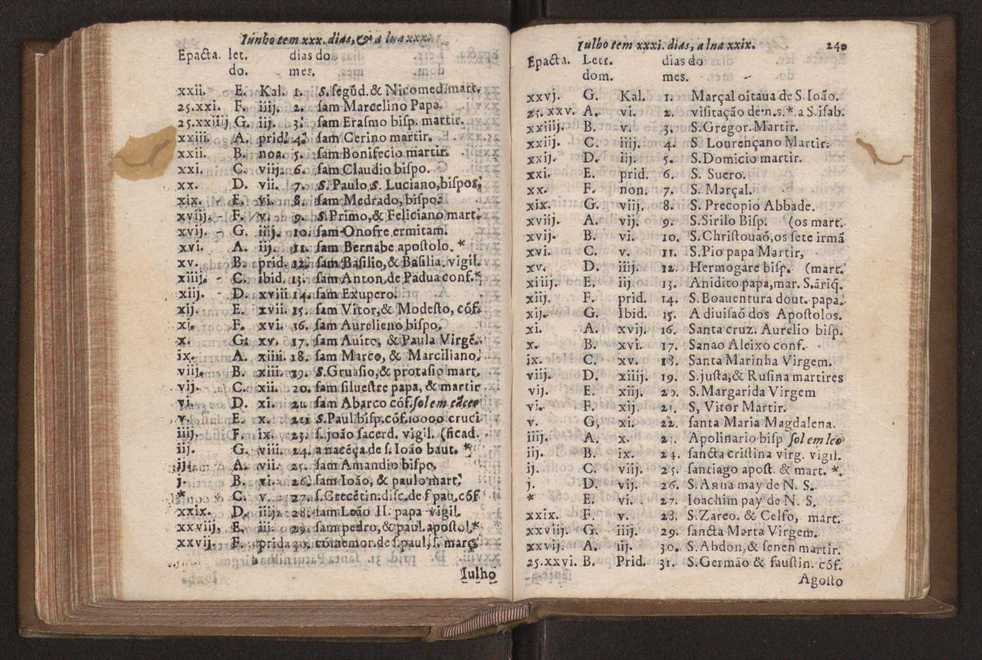 Iunho tem xxx. dias, & a lua xxx.
Epacta. let. dias do
do. mes.
xxii. E. Kal. 1. S. segũd. & Nicomed. mart.
25.xxi. F. iiij. 2. sam Marcelino Papa.
25.xxiiij G. iij. 3. sam Erasmo bisp. martir.
xxiii. A. prid. 4. sam Cerino martir.
xxii. B. noa. 5. sam Bonifecio martir.
xxi. C. viij. 6. sam Claudio bispo.
xx. D. vii. 7. S. Paulo, S. Luciano, bispos,
xix. E. vi. 8. sam Medrado, bispo.
xviij. F. v. 9. S. Primo, & Feliciano mart.
xvij. G. iiij. 10. sam Onofre ermitam.
xvi. A. iij. 11. sam Bernabe apostolo. *
xv. B. prid. 12. sam Basilio, & Basilia. vigil.
xiiij. C. Ibid. 13. sam Anton. de Padua conf. *
xij. D. xviii 14. sam Exupero.
xij. E. xvii. 15. sam Vitor, & Modesto, cõf.
xi. F. xvi. 16. sam Aurelieno bispo.
x. G. xv. 17. sam Auito, & Paula Virgẽ.
ix. A. xiiii. 18. sam Marco, & Marciliano,
viij. B. xiii. 19. S. Gruasio, & protasio mart.
vij. C. xii. 20. sam silvestre papa, & martir
vi. D. xi. 21. sam Abarco cõf. sol em cãcer
v. E. x. 22. S. Paul bisp. cõf. 10000 cruci
iiij. F. ix. 23. s. joão sacerd. vigil. (ficad.
iij. G. viii. 24. a nacẽça de s. Ioão baut. *
ij. A. vii. 25. sam Amandio bispo.
j. B. vi. 26. sam Ioão, & paulo mart.
* C. v. 27. s. Crecẽtin. disc. de s pau. cõf
xxix. D. iiij. 28. sam Leão II. papa vigil.
xxviij. E. iij. 29. sam pedro, & paul. apostol *
xxvij. F. prid a 30. cõmemor. de s. paul, s. març
Iulho
Iulho tem xxxi. dias, a lua xxix. 240
Epacta. Lett. dias do
dom. mes.
xxvj. G. Kal. 1. Marçal oitaua de S. Ioão.
25. xxv. A. vi. 2. visitação de n. s. * a S. isab.
xxiiij. B. v. 3. S. Gregor. Martir.
xxiij. C. iiij. 4. S. Lourençano Martir.
xxij. D. iij. 5. S. Domicio martir.
xxi. E. prid. 6. S. Suero.
xx. F. non. 7. S. Marçal.
xix. G. viij. 8. S. Precopio Abbade.
xviij. A. vij. 9. S. Sirilo Bisp. (os mart.
xvij. B. vi. 10. S. Christouaõ, os sete irmã
xvi. C. v. 11. S. Pio papa Martir,
xv. D. iiij. 12. Hermogare bisp. (mart.
xiiij. E. iij. 13. Anidito papa, mar. S. ãriq.
xiij. F. prid. 14. S. Boauentura dout. papa.
xij. G. Ibid. 15. A diuisaõ dos Apostolos.
xi. A. xvij. 16. Santa cruz. Aurelio bisp.
x. B. xvi. 17. Sanao Aleixo conf.
ix. C. xv. 18. Santa Marinha Virgem.
viij. D. xiiij. 19. S. justa, & Rufina martires
vij. E. xiij. 20. S. Margarida Virgem
vi. F. xij. 21. S, Vitor Martir.
v. G. xi. 22. santa Maria Magdalena.
iiij. A. x. 23. Apolinario bisp sol em leo
iij. B. ix. 24. sancta cristina virg. vigil.
ij. C. viij. 25. santiago apost. & mart. *.
j. D. vij. 26. S. Anna may de N. S.
* E. vi. 27. Ioachim pay de N. S.
xxix. F. v. 28. S. Zareo. & Celso, mart.
xxviij. G. iiij. 29. sancta Marta Virgem.
xxvij. A. iij. 30. S. Abdon, & senen martir.
25.xxvi. B. Prid. 31. S. Germão & faustin. cõf.
Agosto